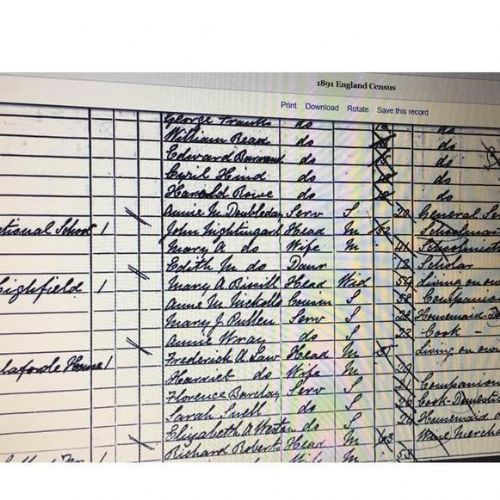 1891 England Census
Print Download Rotate Save this record
George do do
William Read do do
Edward do do
Cyril Hind do do
Harold Rowe do do
Annie M. Doubleday Serv S 20 General
National School 1 John Nightingale Head M 42 Schoolmaster
Mary A do Wife M 41
Edith M. do Daur 12 Scholar
Highfield 1 Mary A Head Wid 59 Living on own
Annie M. Nickolls Cousin S 58 Companion
Mary J. Pullen Serv S 22 Housemaid
Annie Wray do S 23 Cook
House 1 Frederick A Law Head M 31 Living on own
Harriet do Wife M 29
Florence Barclay Serv S 21 Companion
Sarah Snell do S 26 Cook
Elizabeth A. Weston do S 26 Housemaid
Richard Roberts Head M 63 Wine Merchant
53